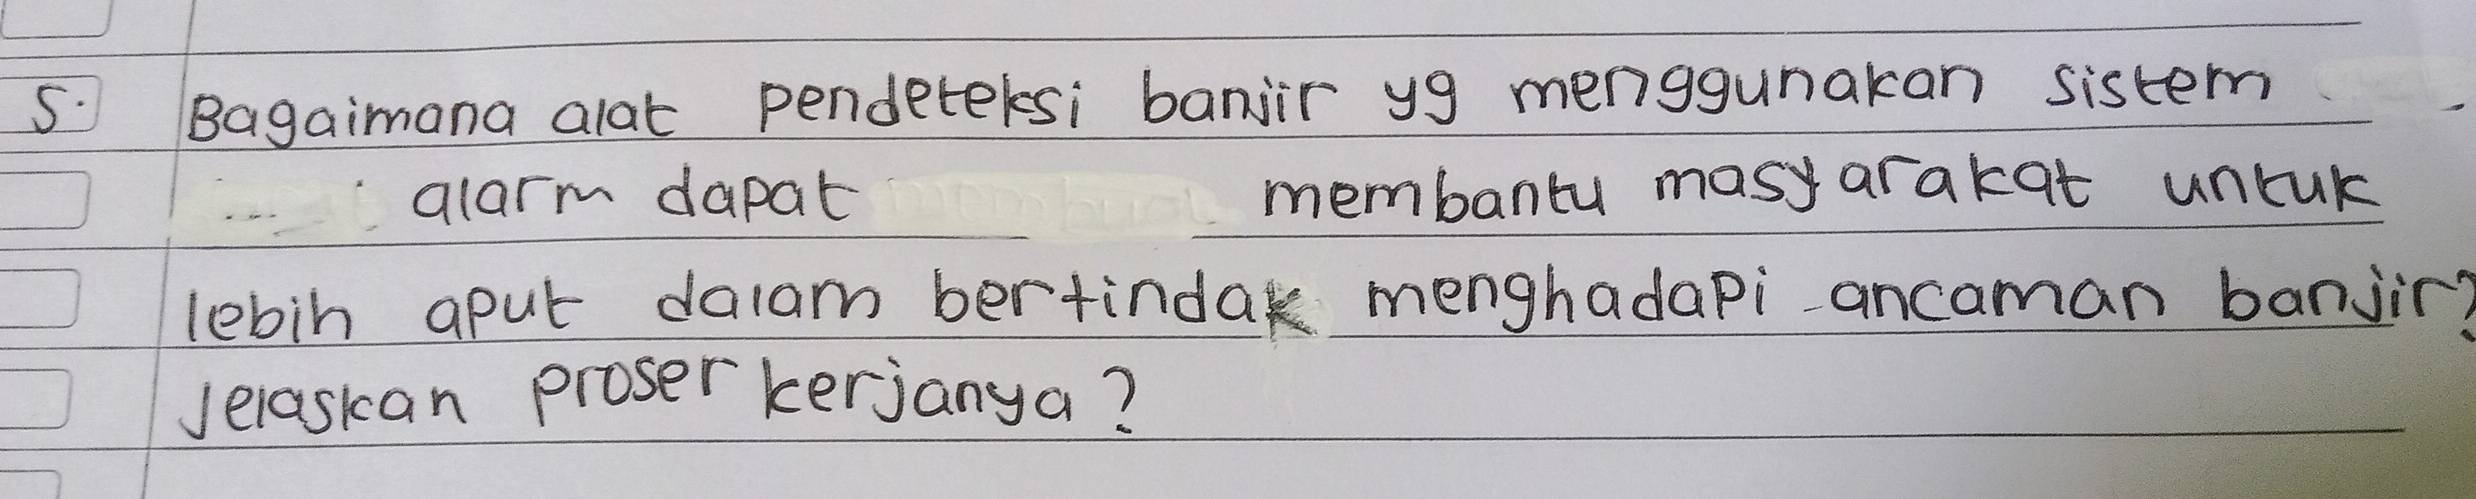 5. Bagaimana alat pendeteksi banjir yg menggunakan sistem
alarm dapat membantu masyarakat untuk
lebih aput dalam bertindak menghadapi ancaman banjir?
Jelaskan proser kerjanya?